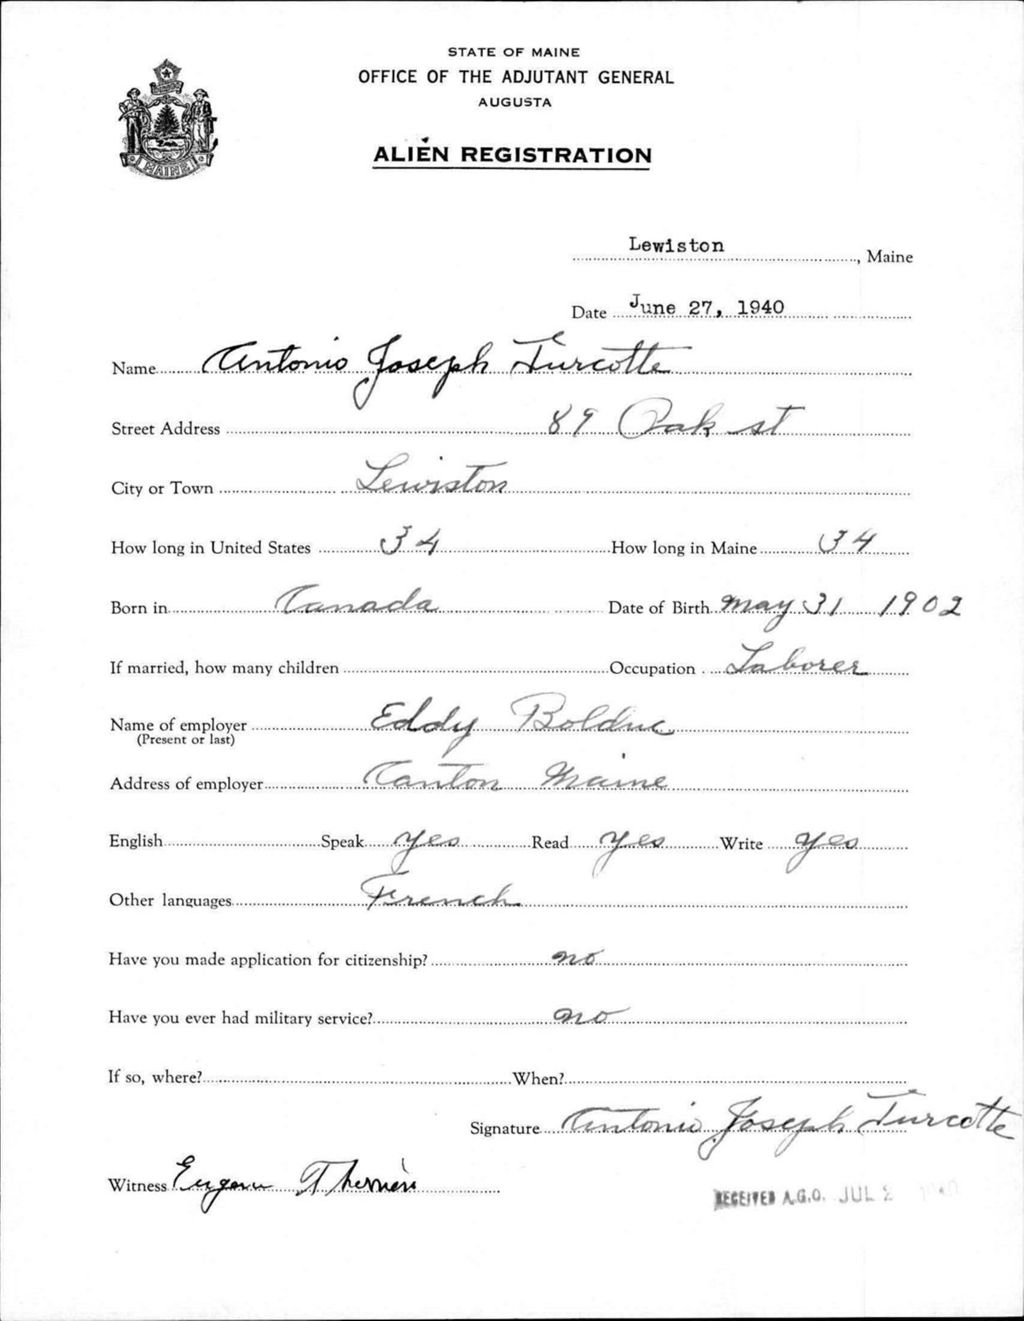 STATE OF MAINE
OFFICE OF THE ADJUTANT GENERAL
AUGUSTA
ALIEN REGISTRATION
MAINE
Lewiston, Maine
Date June 27, 1940
Name Antonio Joseph Turcotte
Street Address 89 Oak st
City or Town Lewiston
How long in United States 34 How long in Maine 34
Born in Canada Date of Birth May 31 1902
If married, how many children Occupation Laborer
Name of employer Eddy Bolduc
(Present or last)
Address of employer Canton Maine
English Speak yes Read yes Write yes
Other languages French
Have you made application for citizenship? no
Have you ever had military service? no
If so, where? When?
Signature Antonio Joseph Turcotte
Witness Therrien
RECEIVED A.G.O. JUL 2